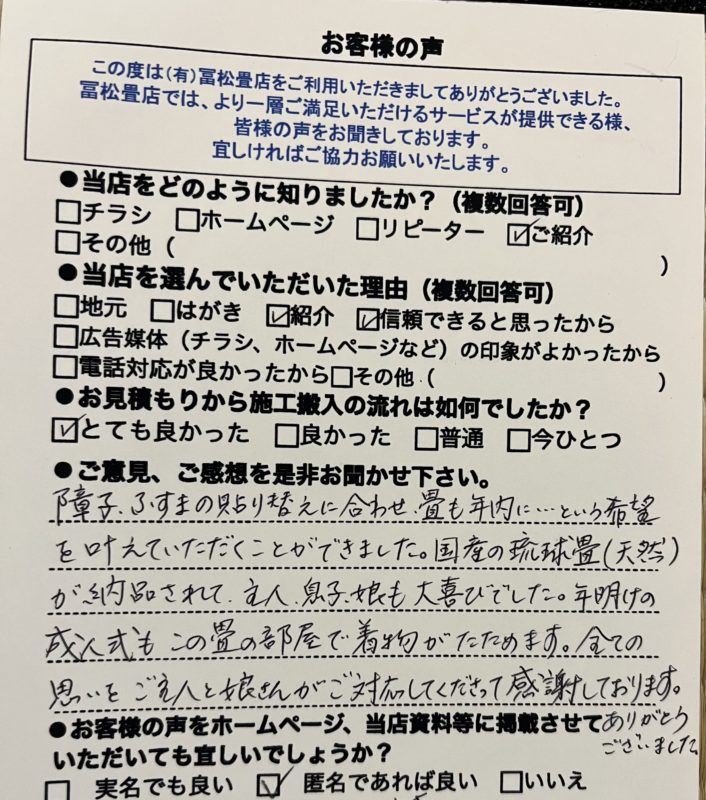 お客様の声
この度は(有)冨松畳店をご利用いただきましてありがとうございました。
冨松畳店では、より一層ご満足いただけるサービスが提供できる様、
皆様の声をお聞きしております。
宜しければご協力お願いいたします。
●当店をどのように知りましたか？（複数回答可）
□チラシ □ホームページ □リピーター ☑ご紹介
□その他（ ）
●当店を選んでいただいた理由（複数回答可）
□地元 □はがき ☑紹介 ☑信頼できると思ったから
□広告媒体（チラシ、ホームページなど）の印象がよかったから
□電話対応が良かったから□その他（ ）
●お見積もりから施工搬入の流れは如何でしたか？
☑とても良かった □良かった □普通 □今ひとつ
●ご意見、ご感想を是非お聞かせ下さい。
障子、ふすまの貼り替えに合わせ、畳も年内に…という希望
を叶えていただくことができました。国産の琉球畳(天然)
が納品されて、主人、息子、娘も大喜びでした。年明けの
成人式もこの畳の部屋で着物がたためます。全ての
思いをご主人と娘さんがご対応してくださって感謝しております。
ありがとう
ございました
●お客様の声をホームページ、当店資料等に掲載させて
いただいても宜しいでしょうか？
□ 実名でも良い ☑ 匿名であれば良い □いいえ